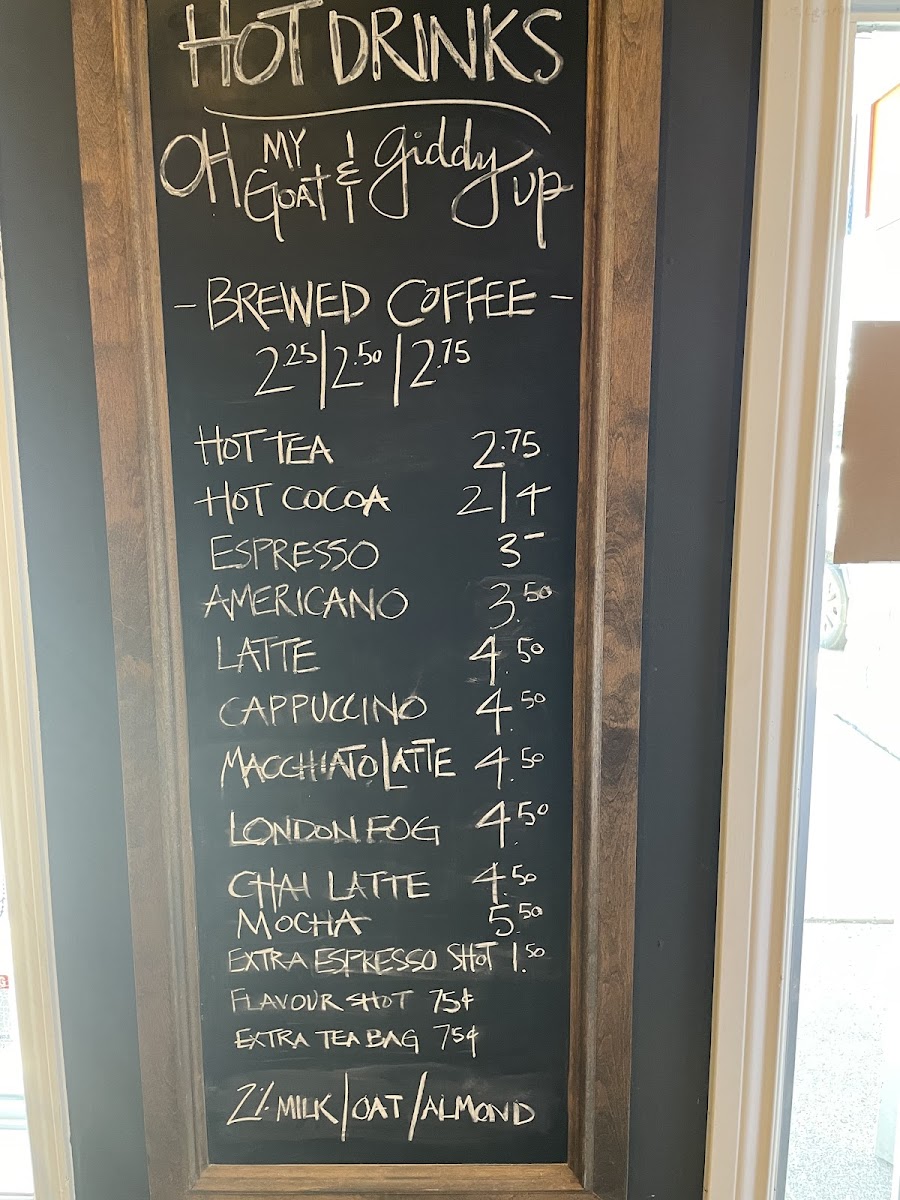 HOT DRINKS
OH MY GOAT & giddy up
- BREWED COFFEE -
2.25 | 2.50 | 2.75
HOT TEA 2.75
HOT COCOA 2 | 4
ESPRESSO 3-
AMERICANO 3.50
LATTE 4.50
CAPPUCCINO 4.50
MACCHIATO LATTE 4.50
LONDON FOG 4.50
CHAI LATTE 4.50
MOCHA 5.50
EXTRA ESPRESSO SHOT 1.50
FLAVOUR SHOT 75¢
EXTRA TEA BAG 75¢
2% MILK / OAT / ALMOND